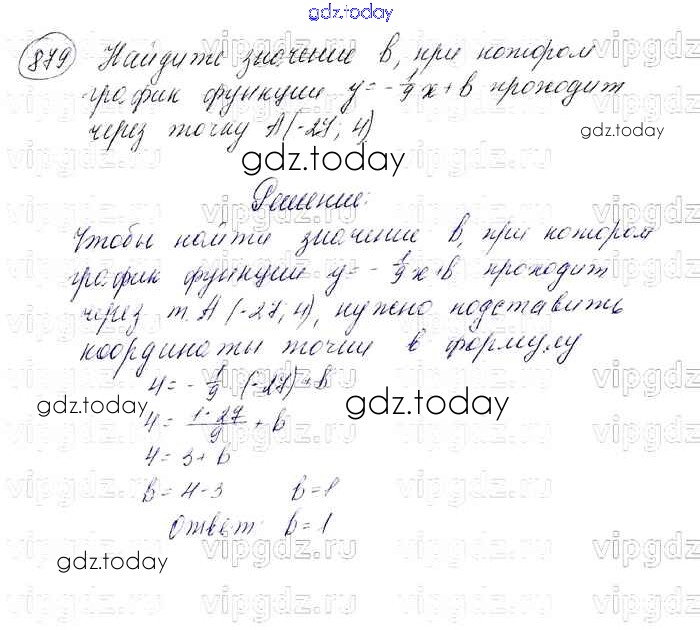 gdz.today
879 Найдите значение b, при котором
график функции y = -1/9 x + b проходит
через точку A(-27; 4)
gdz.today
gdz.today
Решение:
Чтобы найти значение b, при котором
график функции y = -1/9 x + b проходит
через т. A (-27; 4), нужно подставить
координаты точки в формулу
4 = -1/9 · (-27) + b
gdz.today
gdz.today
4 = 1·27/9 + b
4 = 3 + b
b = 4 - 3 b = 1
Ответ: b = 1
gdz.today
vipgdz.ru